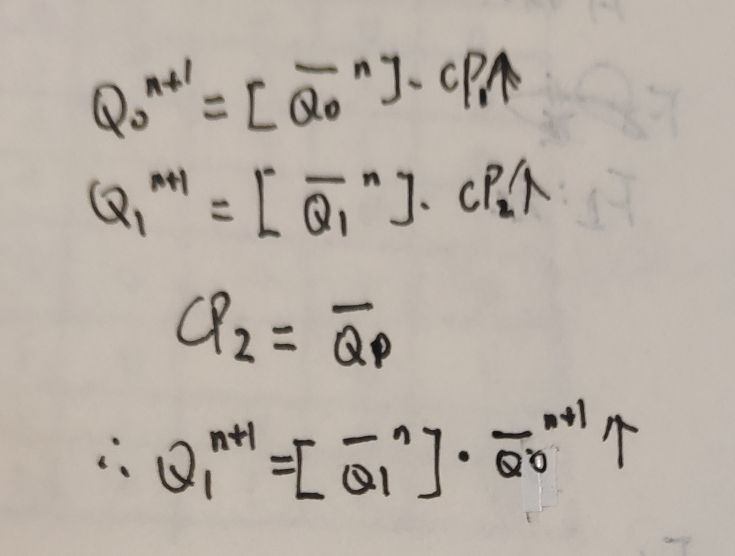 Q₀ⁿ⁺¹ = [ Q̅₀ⁿ ]. CP₁↑
Q₁ⁿ⁺¹ = [ Q̅₁ⁿ ]. CP₂↑
CP₂ = Q̅₀
∴ Q₁ⁿ⁺¹ = [ Q̅₁ⁿ ] · Q̅₀ⁿ⁺¹ ↑